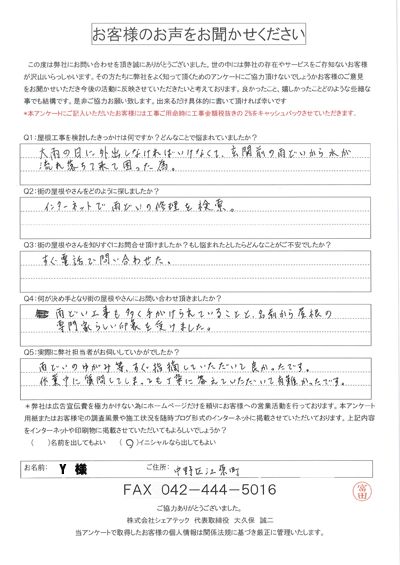 お客様のお声をお聞かせください
この度は弊社にお問い合わせを頂き誠にありがとうございました。世の中には弊社の存在やサービスをご存知ないお客様
が沢山いらっしゃいます。その方たちに弊社をよく知って頂くためのアンケートにご協力頂けないでしょうかお客様のご意見
をお聞かせいただき今後の活動に反映させていただきたいと考えております。良かったこと、嬉しかったことどのような些細な
事でも結構です。是非ご協力お願い致します。出来るだけ具体的に書いて頂ければ幸いです
*本アンケートにご記入いただいたお客様には工事ご用命時に工事金額税抜きの 2%をキャッシュバックさせていただきます。
Q1:屋根工事を検討したきっかけは何ですか?どんなことで悩まれていましたか?
大雨の日に外出しなければいけなくて、玄関前の雨どいから水が
流れ落ちて来て困った為。
Q2:街の屋根やさんをどのように探しましたか?
インターネットで雨どいの修理を検索。
Q3:街の屋根やさんを知りすぐにお問合せ頂けましたか?もし悩まれたとしたらどんなことがご不安でしたか?
すぐ電話で問い合わせた。
Q4:何が決め手となり街の屋根やさんにお問い合わせ頂きましたか?
雨どい工事も多く手がけられていることと、名前から屋根の
専門家らしい印象を受けました。
Q5:実際に弊社担当者がお伺いしていかがでしたか?
雨どいのゆがみ等、すぐ指摘していただいて良かったです。
作業中に質問してしまっても丁寧に答えていただいて有難かったです。
*弊社は広告宣伝費を極力かけない為にホームページだけを頼りにお客様への営業活動を行っております。本アンケート
用紙またはお客様宅の調査風景や施工状況を随時ブログ形式のインターネットに掲載させていただいております。上記内容
をインターネットや印刷物に掲載させていただいてもよろしいでしょうか?
( )名前を出してもよい (○)イニシャルなら出してもよい
お名前: Y 様 ご住所: 中野区江原町
FAX 042-444-5016
富田
ご協力ありがとうございました。
株式会社シェアテック 代表取締役 大久保 誠二
当アンケートで取得したお客様の個人情報は関係法規に基づき厳正に管理いたします。